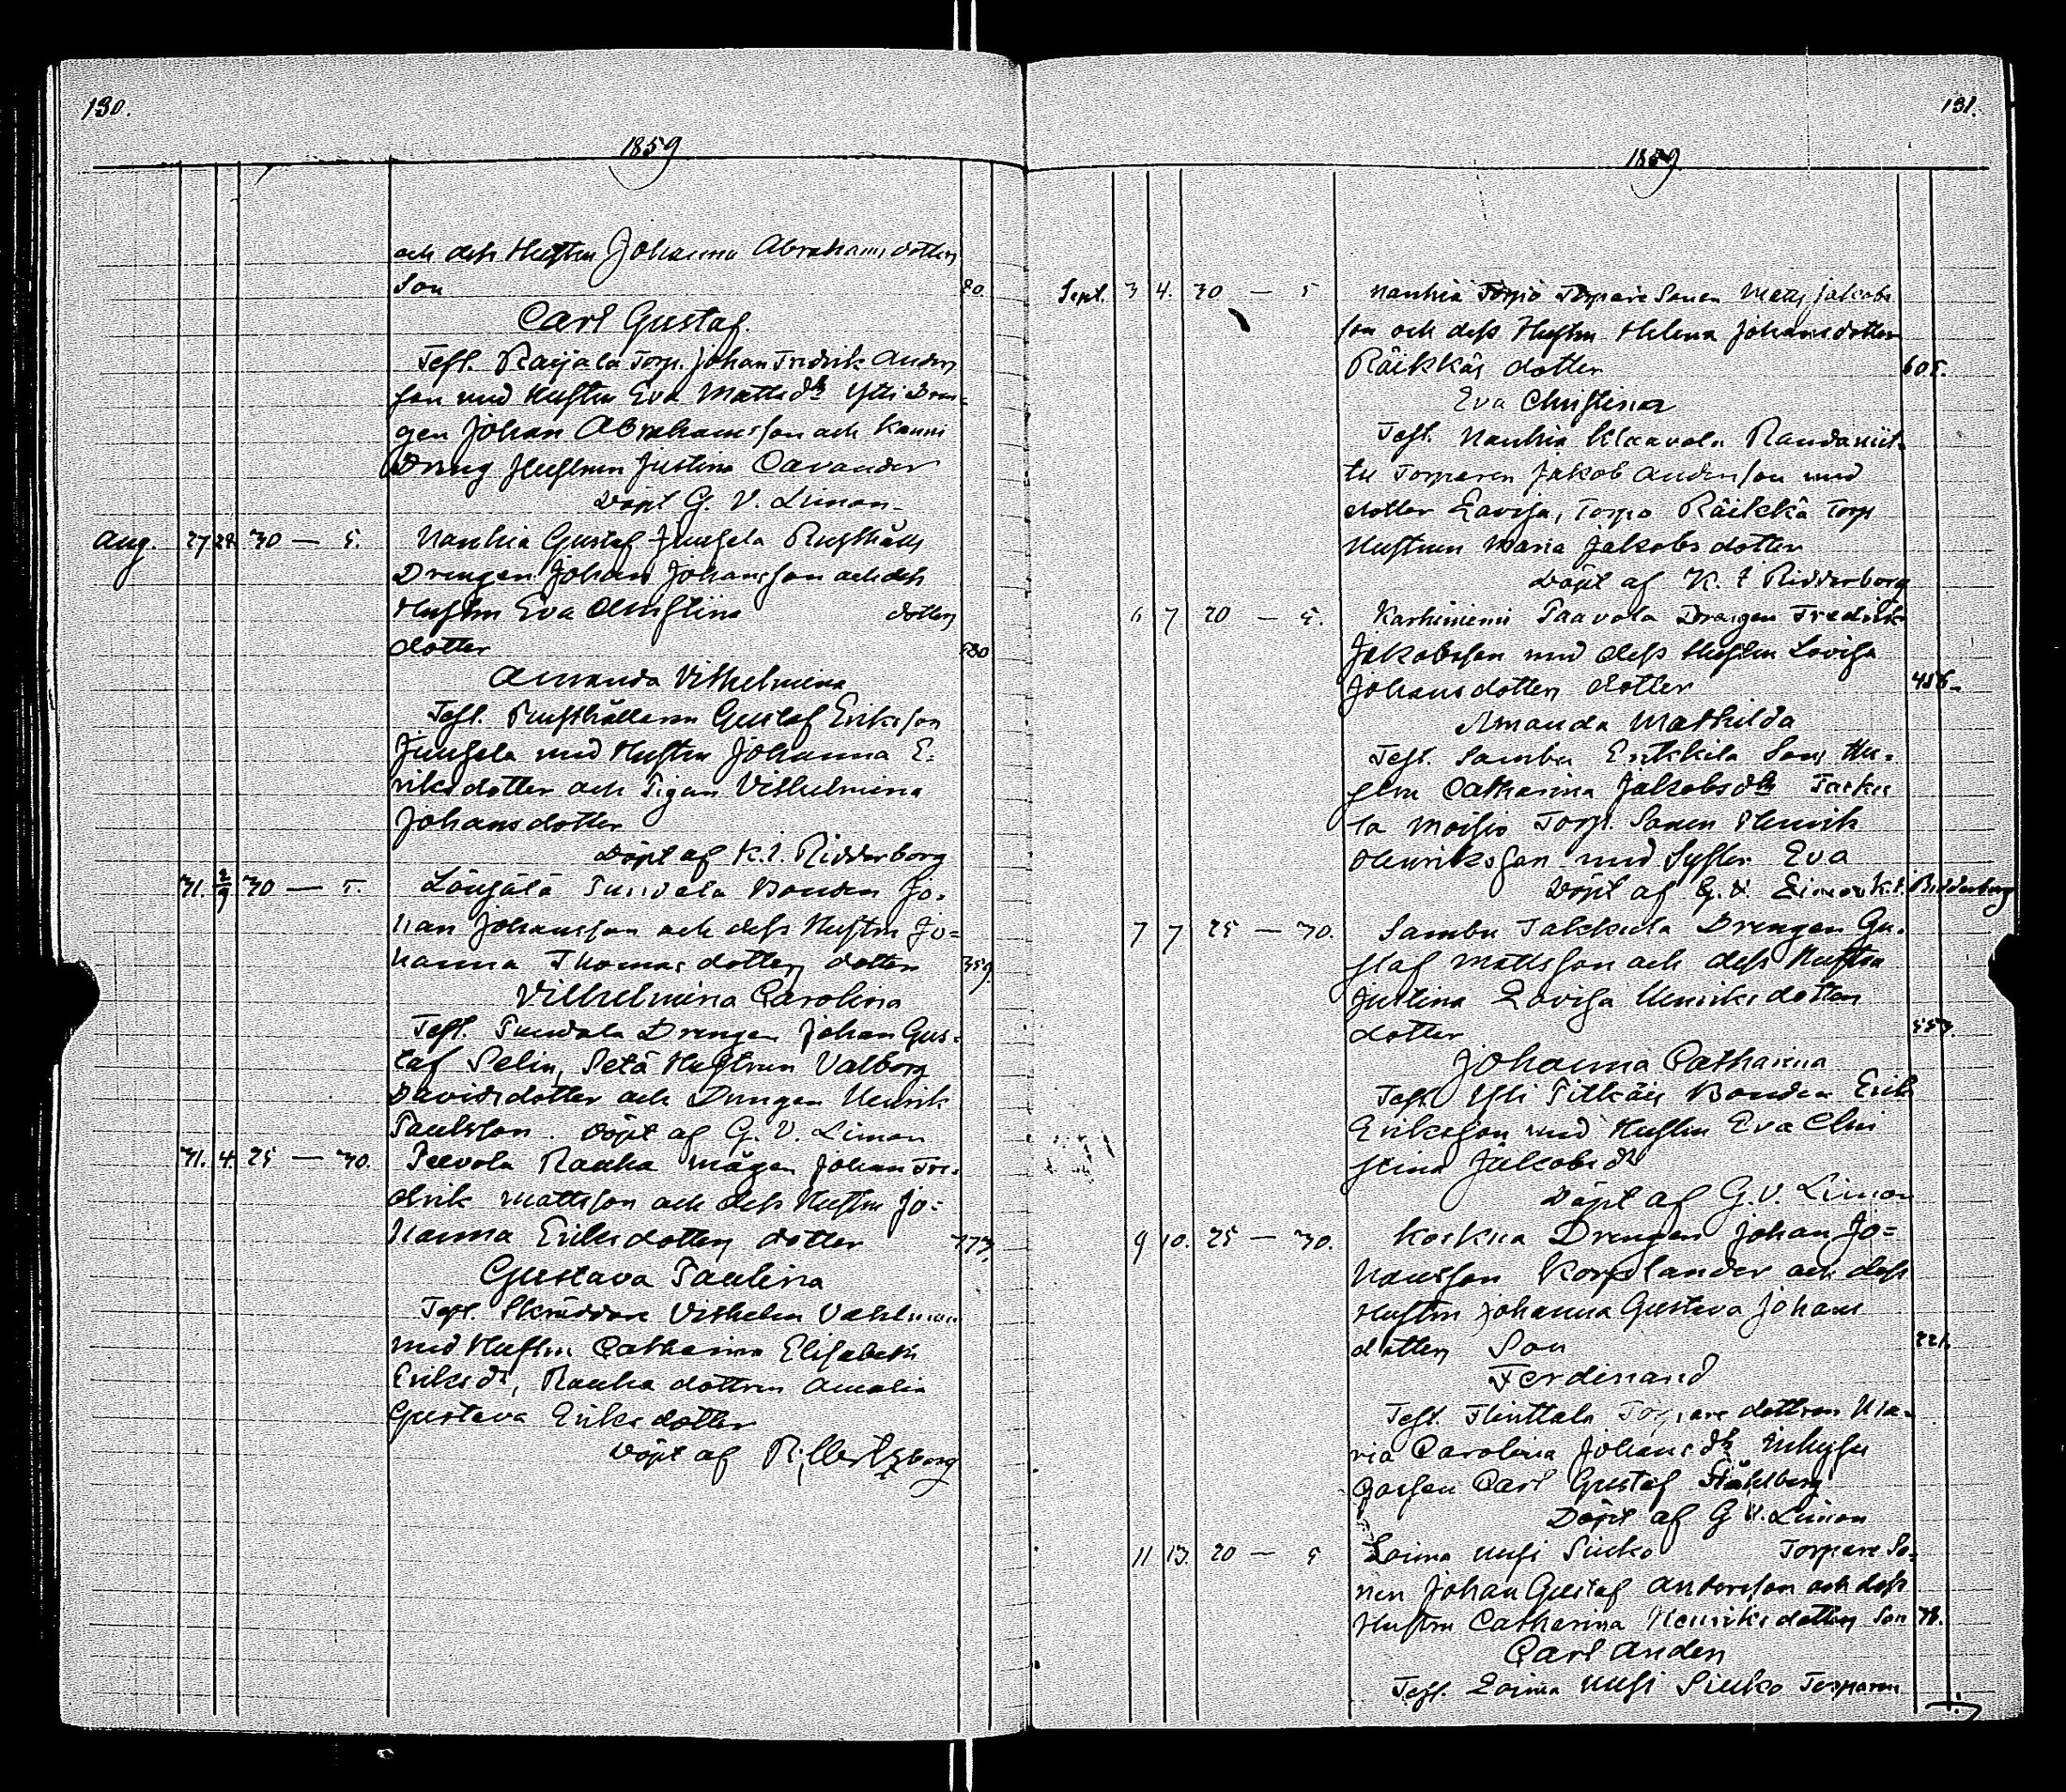 130.
1859
och dess Hustru Johanna Abrahams dotters
Son 80.
Carl Gustaf.
Test. Raijala Torp. Johan Fredrik Anders
son med Hustru Eva Mattsdtr Ylli Dren=
gen Johan Abrahamsson och Kauni
Dreng Hustrun Justina Cavander
Döpt G. V. Limon
Aug. 27 28 30 — 5. Nauhia Gustaf Junsela Rusthålls
Drengen Johan Johansson och dess
Hustru Eva Christina dotters
dotter 580
Amanda Vilhelmina
Test. Rusthållaren Gustaf Eriksson
Junsela med Hustru Johanna E=
riksdotter och Pigan Vilhelmina
Johansdotter
Döpt af K. I. Ridderborg
31. 2/9 30 — 5. Länsälä Punvala Bonden Jo=
han Johansson och dess Hustru Jo=
hanna Thomas dotters dotter 359.
Vilhelmina Carolina
Test. Punvala Drengen Johan Gus=
taf Selin, Setä Hustrun Valborg
Davidsdotter och Drengen Henrik
Paulsson. Döpt af G. V. Limon
31. 4. 25 — 30. Peevola Rauha mågen Johan Fre=
drik Mattsson och dess Hustru Jo=
hanna Eriksdotters dotter 173.
Gustava Paulina
Test. Skräddare Vilhelm Vahlman
med Hustru Catharina Elisabeth
Eriksdr, Rauha dottren Amalia
Gustava Eriks dotter
Döpt af
131.
1859.
Sept. 3 4. 30 — 5 Nauhia Torpo Torpare Sonen Matts Jakobs
son och dess Hustru Helena Johansdotters
Räikkäs dotter 605.
Eva Christina
Test. Nauhia Uknavola Randaniit=
tu Torparen Jakob Andersson med
dotter Lovisa, Torpo Räikkä Torp
Hustrun Maria Jakobs dotter
Döpt af K. I Ridderborg
6 7 20 — 5. Karhiniemi Paavola Drengen Fredrik
Jakobsson med dess Hustru Lovisa
Johansdotters dotter 456.
Amanda Mathilda
Test. Sambu Erkkila Sons Hu=
stru Catharina Jakobsdtr
la Moisio Torp. Sonen Henrik
Henriksson med Syster Eva
Döpt af G. V. Limon K. I. Ridderborg
7 7 25 — 30. Sambu Jakkula Drengen Gu=
staf Mattsson och dess Hustru
Justina Lovisa Henriksdotters
dotter 553.
Johanna Catharina
Test. Yli Pitkäis Bonden Erik
Eriksson med Hustru Eva Chri
stina Jakobsdr
Döpt af G. V. Limon
9 10. 25 — 30. Koskua Drengen Johan Jo=
hansson Korslander och dess
Hustru Johanna Gustava Johans
dotters Son 221.
Ferdinand
Test. Flinttala Torpare dottren Ma=
ria Carolina Johansdtr Inhyses
Gossen Carl Gustaf Ståhlberg
Döpt af G V. Limon
11 13. 20 — 5 Loima Uusi Siuko Torpare So=
nen Johan Gustaf Andersson och dess
Hustru Catharina Henriksdotters Son 78.
Carl Anders
Test. Loima Uusi Siuko Torparen